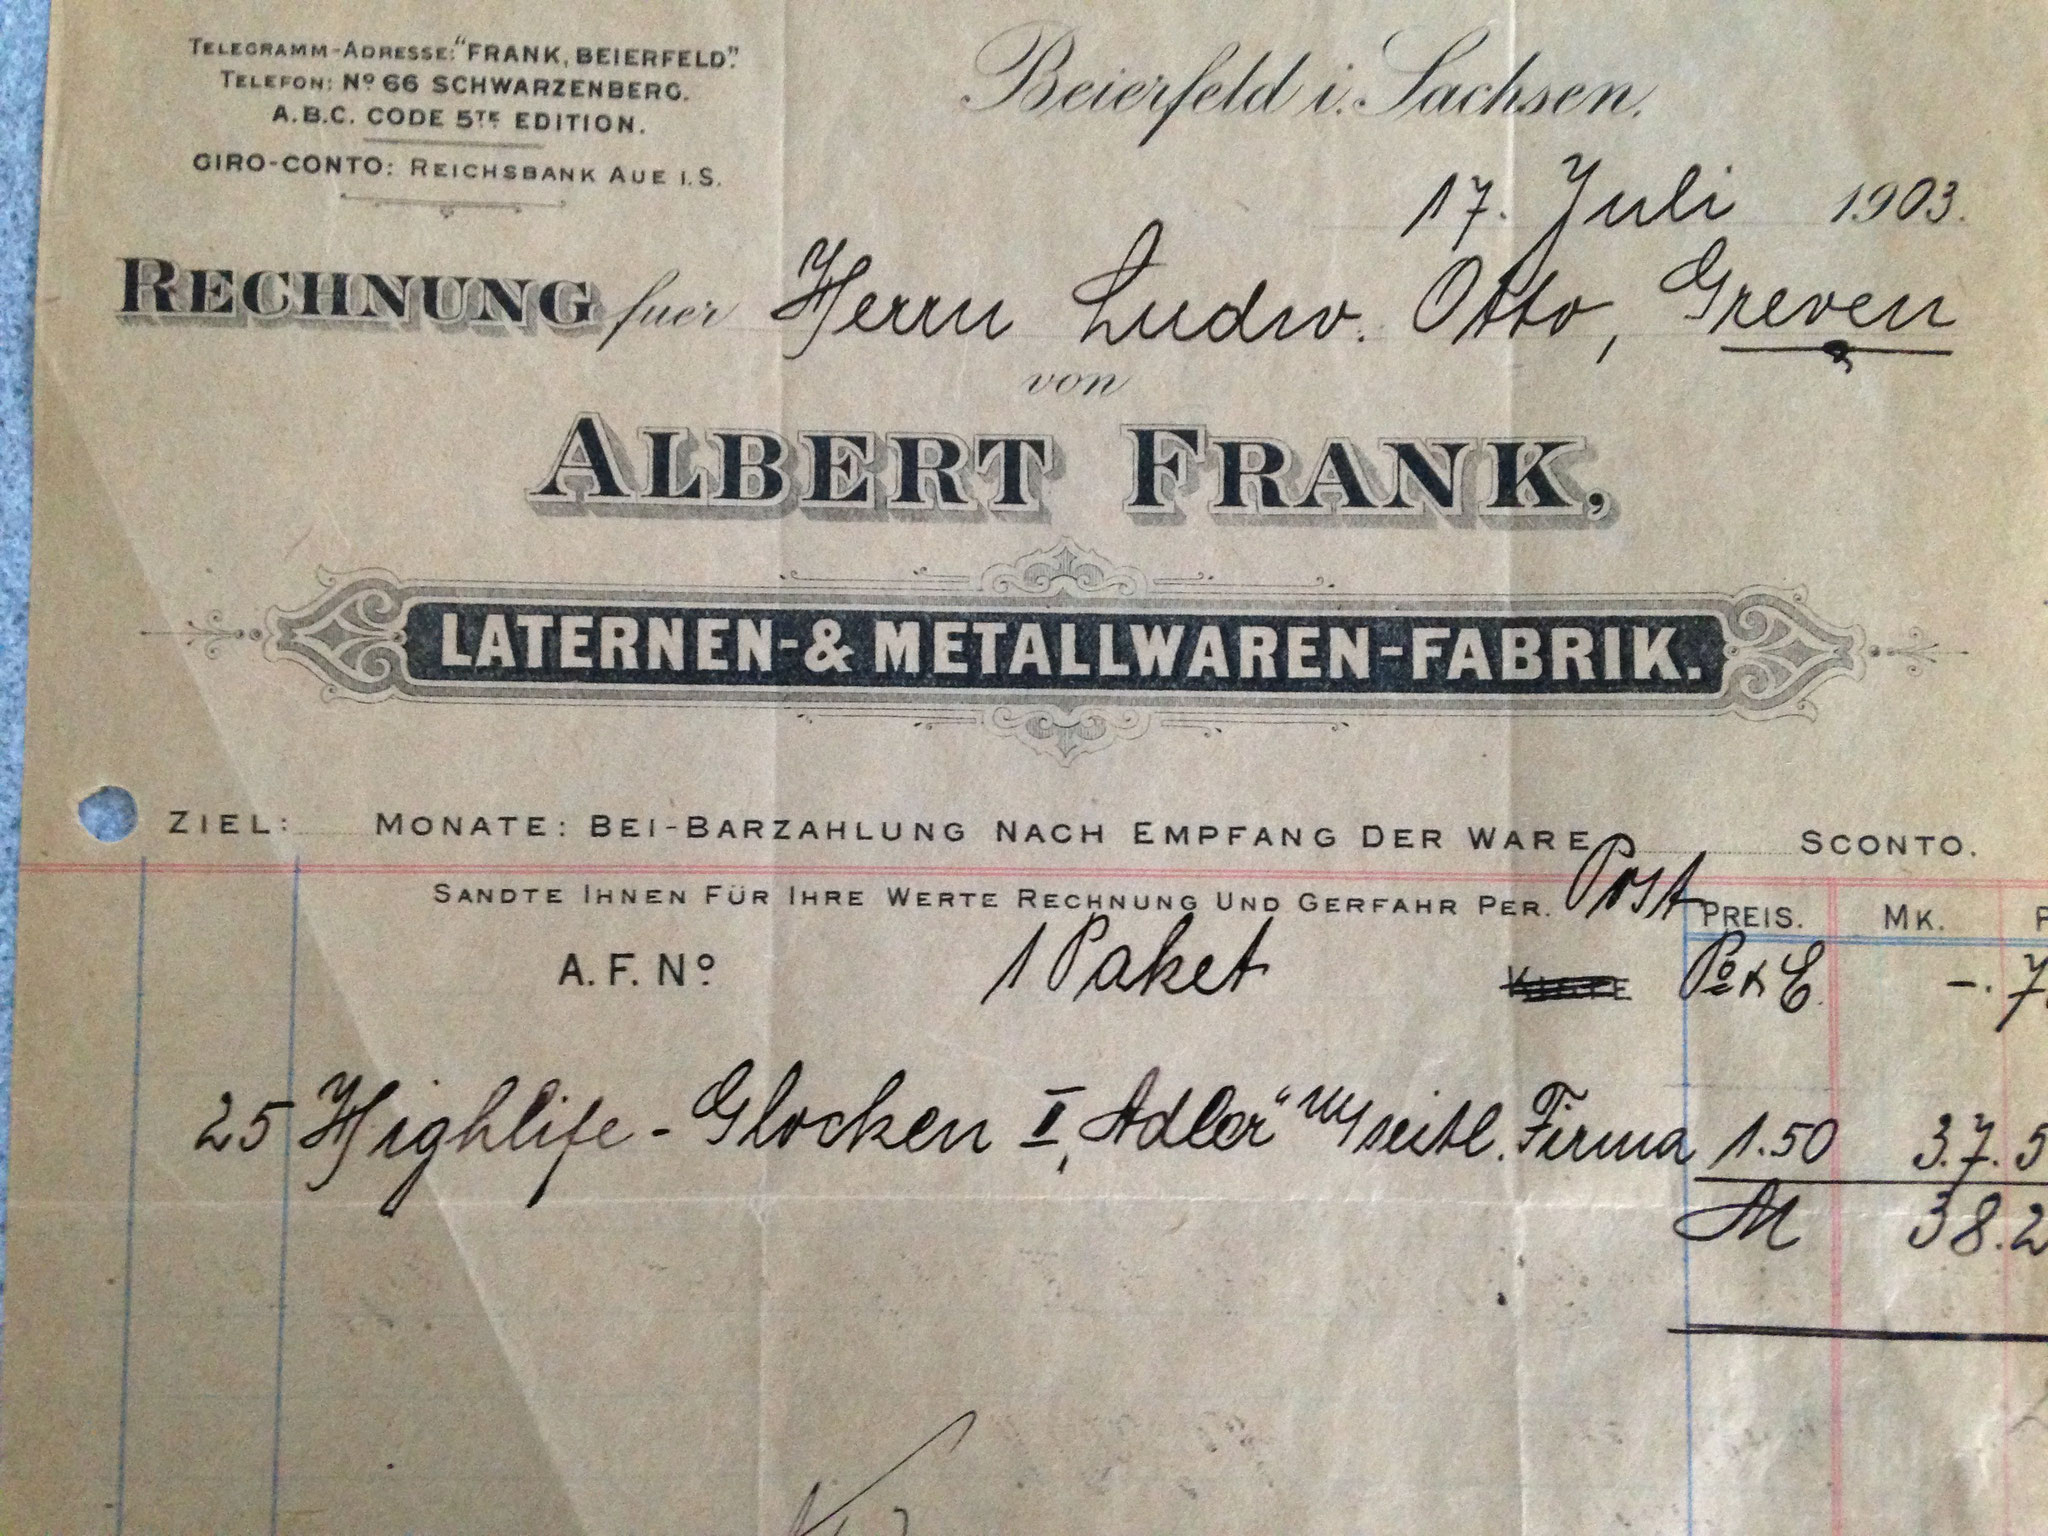 TELEGRAMM-ADRESSE: "FRANK, BEIERFELD".
TELEFON: Nº 66 SCHWARZENBERG.
A.B.C. CODE 5TE EDITION.
GIRO-CONTO: REICHSBANK AUE I.S.
Beierfeld i. Sachsen.
17. Juli 1903.
RECHNUNG fuer Herrn Ludw. Otto, Greven
von
ALBERT FRANK,
LATERNEN-& METALLWAREN-FABRIK.
ZIEL: MONATE: BEI-BARZAHLUNG NACH EMPFANG DER WARE SCONTO.
SANDTE IHNEN FÜR IHRE WERTE RECHNUNG UND GERFAHR PER. Post PREIS. MK.
A.F. Nº 1 Paket -.7
25 Highlife-Glocken II „Adler" m/seitl. Firma 1.50 37.5
M 38.2